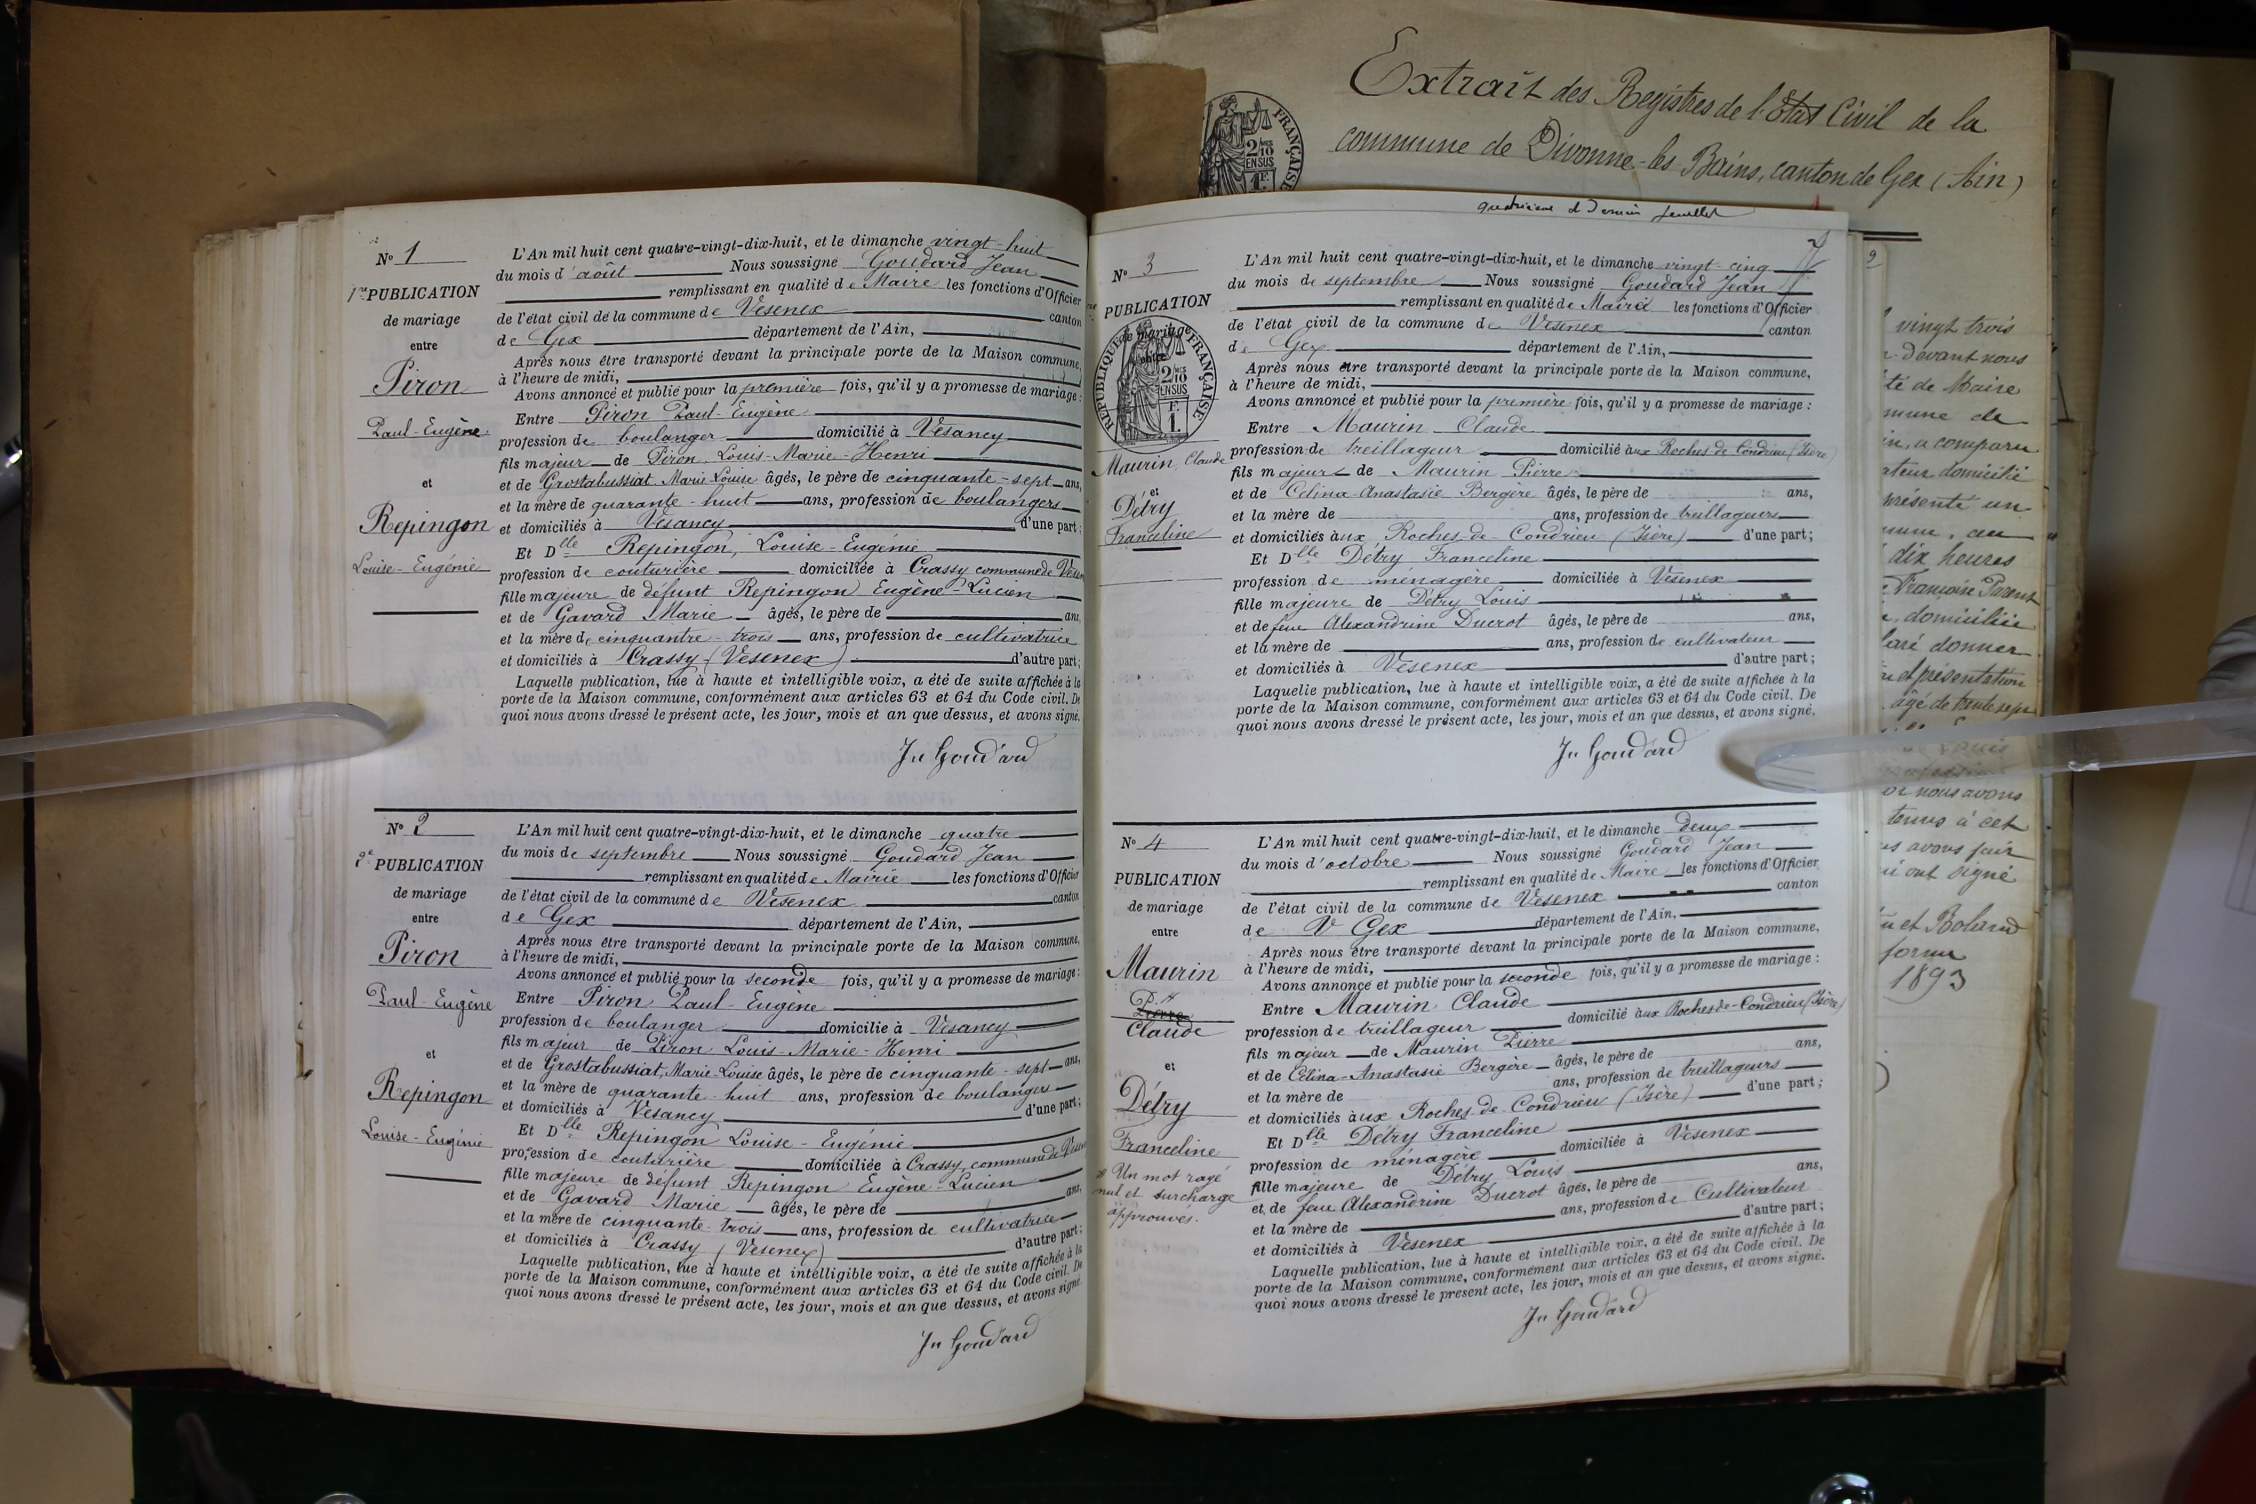 Extrait des Registres de l'Etat Civil de la
commune de Divonne-les-Bains, canton de Gex (Ain)
FRANÇAISE
2/10
EN SUS
1 F.
N° 1
1re PUBLICATION
de mariage
entre
Piron
Paul-Eugène
et
Repingon
Louise-Eugénie
L'An mil huit cent quatre-vingt-dix-huit, et le dimanche vingt-huit
du mois d'août Nous soussigné Goudard Jean
remplissant en qualité de Maire les fonctions d'Officier
de l'état civil de la commune de Vesenex canton
de Gex département de l'Ain,
Après nous être transporté devant la principale porte de la Maison commune,
à l'heure de midi,
Avons annoncé et publié pour la première fois, qu'il y a promesse de mariage :
Entre Piron Paul-Eugène
profession de boulanger domicilié à Vesancy
fils majeur de Piron Louis-Marie-Henri
et de Grostabussiat Marie-Louise âgés, le père de cinquante-sept ans,
et la mère de quarante-huit ans, profession de boulangers
et domiciliés à Vesancy d'une part ;
Et Dlle Repingon, Louise-Eugénie
profession de couturière domiciliée à Crassy commune de Vesen
fille majeure de défunt Repingon Eugène-Lucien
et de Gavard Marie âgés, le père de ans,
et la mère de cinquantre-trois ans, profession de cultivatrice
et domiciliés à Crassy (Vesenex) d'autre part ;
Laquelle publication, lue à haute et intelligible voix, a été de suite affichée à la
porte de la Maison commune, conformément aux articles 63 et 64 du Code civil. De
quoi nous avons dressé le présent acte, les jour, mois et an que dessus, et avons signé.
Jn Goudard
N° 2
2e PUBLICATION
de mariage
entre
Piron
Paul-Eugène
et
Repingon
Louise-Eugénie
L'An mil huit cent quatre-vingt-dix-huit, et le dimanche quatre
du mois de septembre Nous soussigné Goudard Jean
remplissant en qualité de Mairie les fonctions d'Officier
de l'état civil de la commune de Vesenex canton
de Gex département de l'Ain,
Après nous être transporté devant la principale porte de la Maison commune,
à l'heure de midi,
Avons annoncé et publié pour la seconde fois, qu'il y a promesse de mariage :
Entre Piron Paul-Eugène
profession de boulanger domicilié à Vesancy
fils majeur de Piron Louis-Marie-Henri
et de Grostabussiat, Marie-Louise âgés, le père de cinquante-sept ans,
et la mère de quarante-huit ans, profession de boulangers
et domiciliés à Vesancy d'une part ;
Et Dlle Repingon Louise-Eugénie
profession de couturière domiciliée à Crassy, commune de Vesen
fille majeure de défunt Repingon Eugène-Lucien
et de Gavard Marie âgés, le père de ans,
et la mère de cinquante-trois ans, profession de cultivatrice
et domiciliés à Crassy (Vesenex) d'autre part ;
Laquelle publication, lue à haute et intelligible voix, a été de suite affichée à la
porte de la Maison commune, conformément aux articles 63 et 64 du Code civil. De
quoi nous avons dressé le présent acte, les jour, mois et an que dessus, et avons signé.
Jn Goudard
quatrième et dernier feuillet
N° 3
PUBLICATION
de mariage
entre
RÉPUBLIQUE FRANÇAISE
2/10
EN SUS
1 F.
Maurin Claude
et
Détry
Franceline
L'An mil huit cent quatre-vingt-dix-huit, et le dimanche vingt-cinq
du mois de septembre Nous soussigné Goudard Jean
remplissant en qualité de Mairie les fonctions d'Officier
de l'état civil de la commune de Vesenex canton
de Gex département de l'Ain,
Après nous être transporté devant la principale porte de la Maison commune,
à l'heure de midi,
Avons annoncé et publié pour la première fois, qu'il y a promesse de mariage :
Entre Maurin Claude
profession de treillageur domicilié aux Roches-de-Condrieu (Isère)
fils majeur de Maurin Pierre
et de Célina-Anastasie Bergère âgés, le père de ans,
et la mère de ans, profession de treillageurs
et domiciliés aux Roches-de-Condrieu (Isère) d'une part ;
Et Dlle Détry Franceline
profession de ménagère domiciliée à Vesenex
fille majeure de Détry Louis
et de feue Alexandrine Ducrot âgés, le père de ans,
et la mère de ans, profession de cultivateur
et domiciliés à Vesenex d'autre part ;
Laquelle publication, lue à haute et intelligible voix, a été de suite affichée à la
porte de la Maison commune, conformément aux articles 63 et 64 du Code civil. De
quoi nous avons dressé le présent acte, les jour, mois et an que dessus, et avons signé.
Jn Goudard
N° 4
PUBLICATION
de mariage
entre
Maurin
Pierre
Claude
et
Détry
Franceline
Un mot rayé
nul et surcharge
approuvés.
L'An mil huit cent quatre-vingt-dix-huit, et le dimanche deux
du mois d'octobre Nous soussigné Goudard Jean
remplissant en qualité de Maire les fonctions d'Officier
de l'état civil de la commune de Vesenex canton
de V Gex département de l'Ain,
Après nous être transporté devant la principale porte de la Maison commune,
à l'heure de midi,
Avons annoncé et publié pour la seconde fois, qu'il y a promesse de mariage :
Entre Maurin Claude
profession de treillageur domicilié aux Roches-de-Condrieu (Isère)
fils majeur de Maurin Pierre
et de Célina-Anastasie Bergère âgés, le père de ans,
et la mère de ans, profession de treillageurs
et domiciliés aux Roches-de-Condrieu (Isère) d'une part ;
Et Dlle Détry Franceline
profession de ménagère domiciliée à Vesenex
fille majeure de Détry Louis
et de feue Alexandrine Ducrot âgés, le père de ans,
et la mère de ans, profession de Cultivateur
et domiciliés à Vesenex d'autre part ;
Laquelle publication, lue à haute et intelligible voix, a été de suite affichée à la
porte de la Maison commune, conformément aux articles 63 et 64 du Code civil. De
quoi nous avons dressé le présent acte, les jour, mois et an que dessus, et avons signé.
Jn Goudard
2
vingt trois
devant nous
té de Maire
mune de
in, a comparu
ateur domicilié
présenté un
mune, au
dix heures
Françoise Parent
domiciliée
laré donner
et présentation
âgé de trente sept
nous avons
tenus à cet
us avons fait
ui ont signé
et Boland
forme
1893